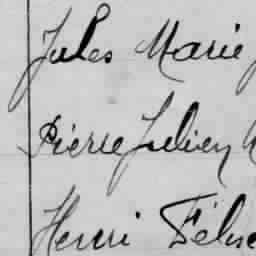 Jules Marie
Pierre Julien
Henri